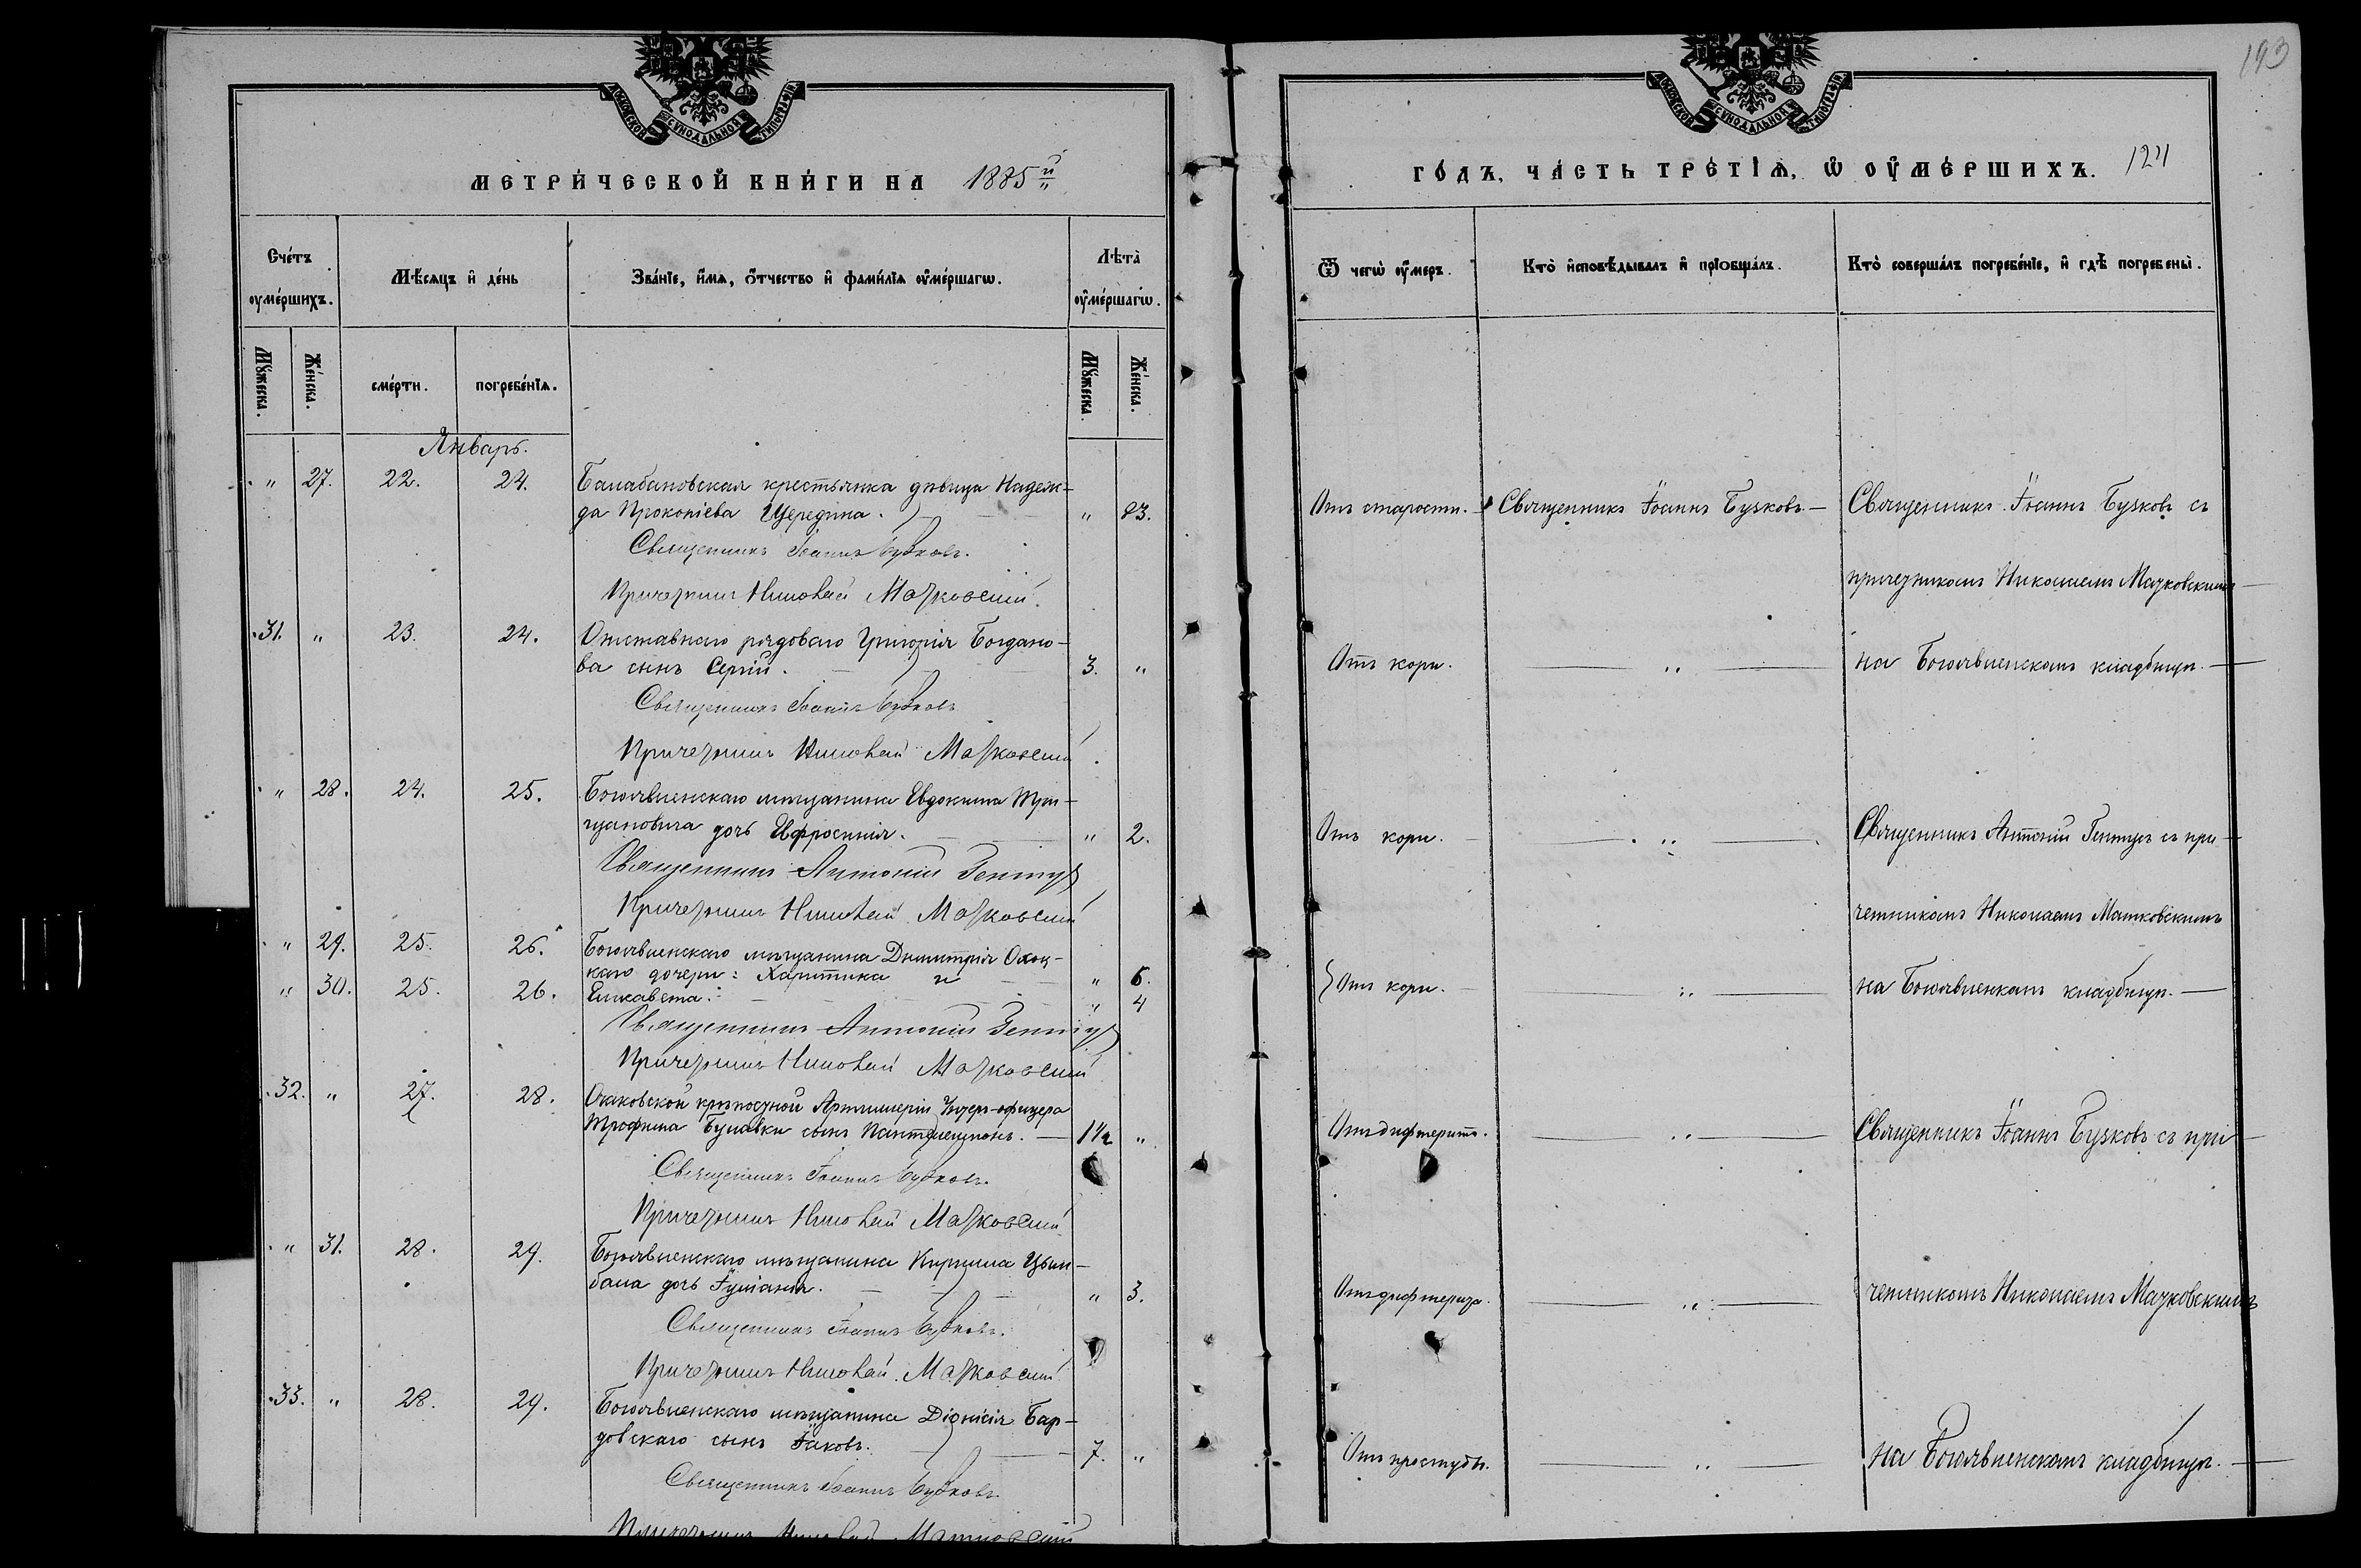 МОСКОВСКОЙ СѴНОДАЛЬНОЙ ТИПОГРАФІИ
МЕТРИ́ЧЕСКОЙ КНИ́ГИ НА 1885й
Сче́тъ оумéршихъ.
Мѣ́сяцъ и҆ де́нь
Зва́нїе, и҆́мѧ, ѻ҆́тчество и҆ фами́лїѧ оу҆ме́ршагѡ.
Лѣ́та оу҆ме́ршагѡ.
Мꙋ́жеска.
Же́нска.
сме́рти.
погребе́нїѧ.
Мꙋ́жеска.
Же́нска.
Январь.
" 27. 22. 24. Балабановская крестьянка дѣвица Надеж-
да Прокопіева Щередина. " 83.
Священникъ Іоаннъ Бузковъ.
Причетникъ Николай Мачковскій.
31. " 23. 24. Отставнаго рядоваго Григорія Богдано-
ва сынъ Сергій. 3. "
Священникъ Іоаннъ Бузковъ
Причетникъ Николай Мачковскій.
" 28. 24. 25. Богоявленскаго мѣщанина Евдокима
дочь Ефросинія. " 2.
Священникъ Антоній Гентуръ
Причетникъ Николай Мачковскій
" 29. 25. 26. Богоявленскаго мѣщанина Димитрія
дочери: Харитина и " 6.
" 30. 25. 26. Елисавета. " 4
Священникъ Антоній Гентуръ
Причетникъ Николай Мачковскій
32. " 27. 28. Очаковской крѣпостной Артиллеріи Унтеръ-офицера
Трофима Булавки сынъ Пантелеимонъ. 1½ "
Священникъ Іоаннъ Бузковъ.
Причетникъ Николай Мачковскій
" 31. 28. 29. Богоявленскаго мѣщанина Кирилла Цым-
бала дочь Іуліанія. " 3.
Священникъ Іоаннъ Бузковъ.
Причетникъ Николай Мачковскій
33. " 28. 29. Богоявленскаго мѣщанина Діонисія Бар-
довскаго сынъ Іаковъ. 7. "
Священникъ Іоаннъ Бузковъ.
Причетникъ Николай Мачковскій
193
МОСКОВСКОЙ СѴНОДАЛЬНОЙ ТИПОГРАФІИ
ГО́ДЪ, ЧА́СТЬ ТРЕ́ТЇѦ, Ѡ҆ ОУ҆МЕ́РШИХЪ. 124
Ѿ чегѡ̀ оу҆́меръ.
Кто̀ и҆сповѣ́дывалъ и҆ прїобща́лъ.
Кто̀ соверша́лъ погребе́нїе, и҆ гдѣ̀ погребены̀.
Отъ старости. Священникъ Іоаннъ Бузковъ. Священникъ Іоаннъ Бузковъ съ
причетникомъ Николаемъ Мачковскимъ
Отъ кори. " на Богоявленскомъ кладбищѣ.
Отъ кори. " Священникъ Антоній Гентуръ съ при-
четникомъ Николаемъ Мачковскимъ
Отъ кори. " на Богоявленскомъ кладбищѣ.
Отъ дифтерита. " Священникъ Іоаннъ Бузковъ съ при
четникомъ Николаемъ Мачковскимъ
Отъ дифтерита. "
Отъ простуды. " на Богоявленскомъ кладбищѣ.